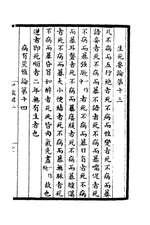 生死要論第十三
凡不病而五行絕者死不病而性變者死不病而暴
語妄者死不病而暴不語者死不病而暴喘促者死不病
而暴強厥者死不病而暴目盲者死不病
而暴耳聾者死不病而暴痿緩者死不病而暴腫滿
者死不病而暴大小便結者死不病而暴無脉者死不病而
暴昏冒如醉者死此皆內氣先盡故也
逆者即死順者二年無有生者也
病有災怪論第十四